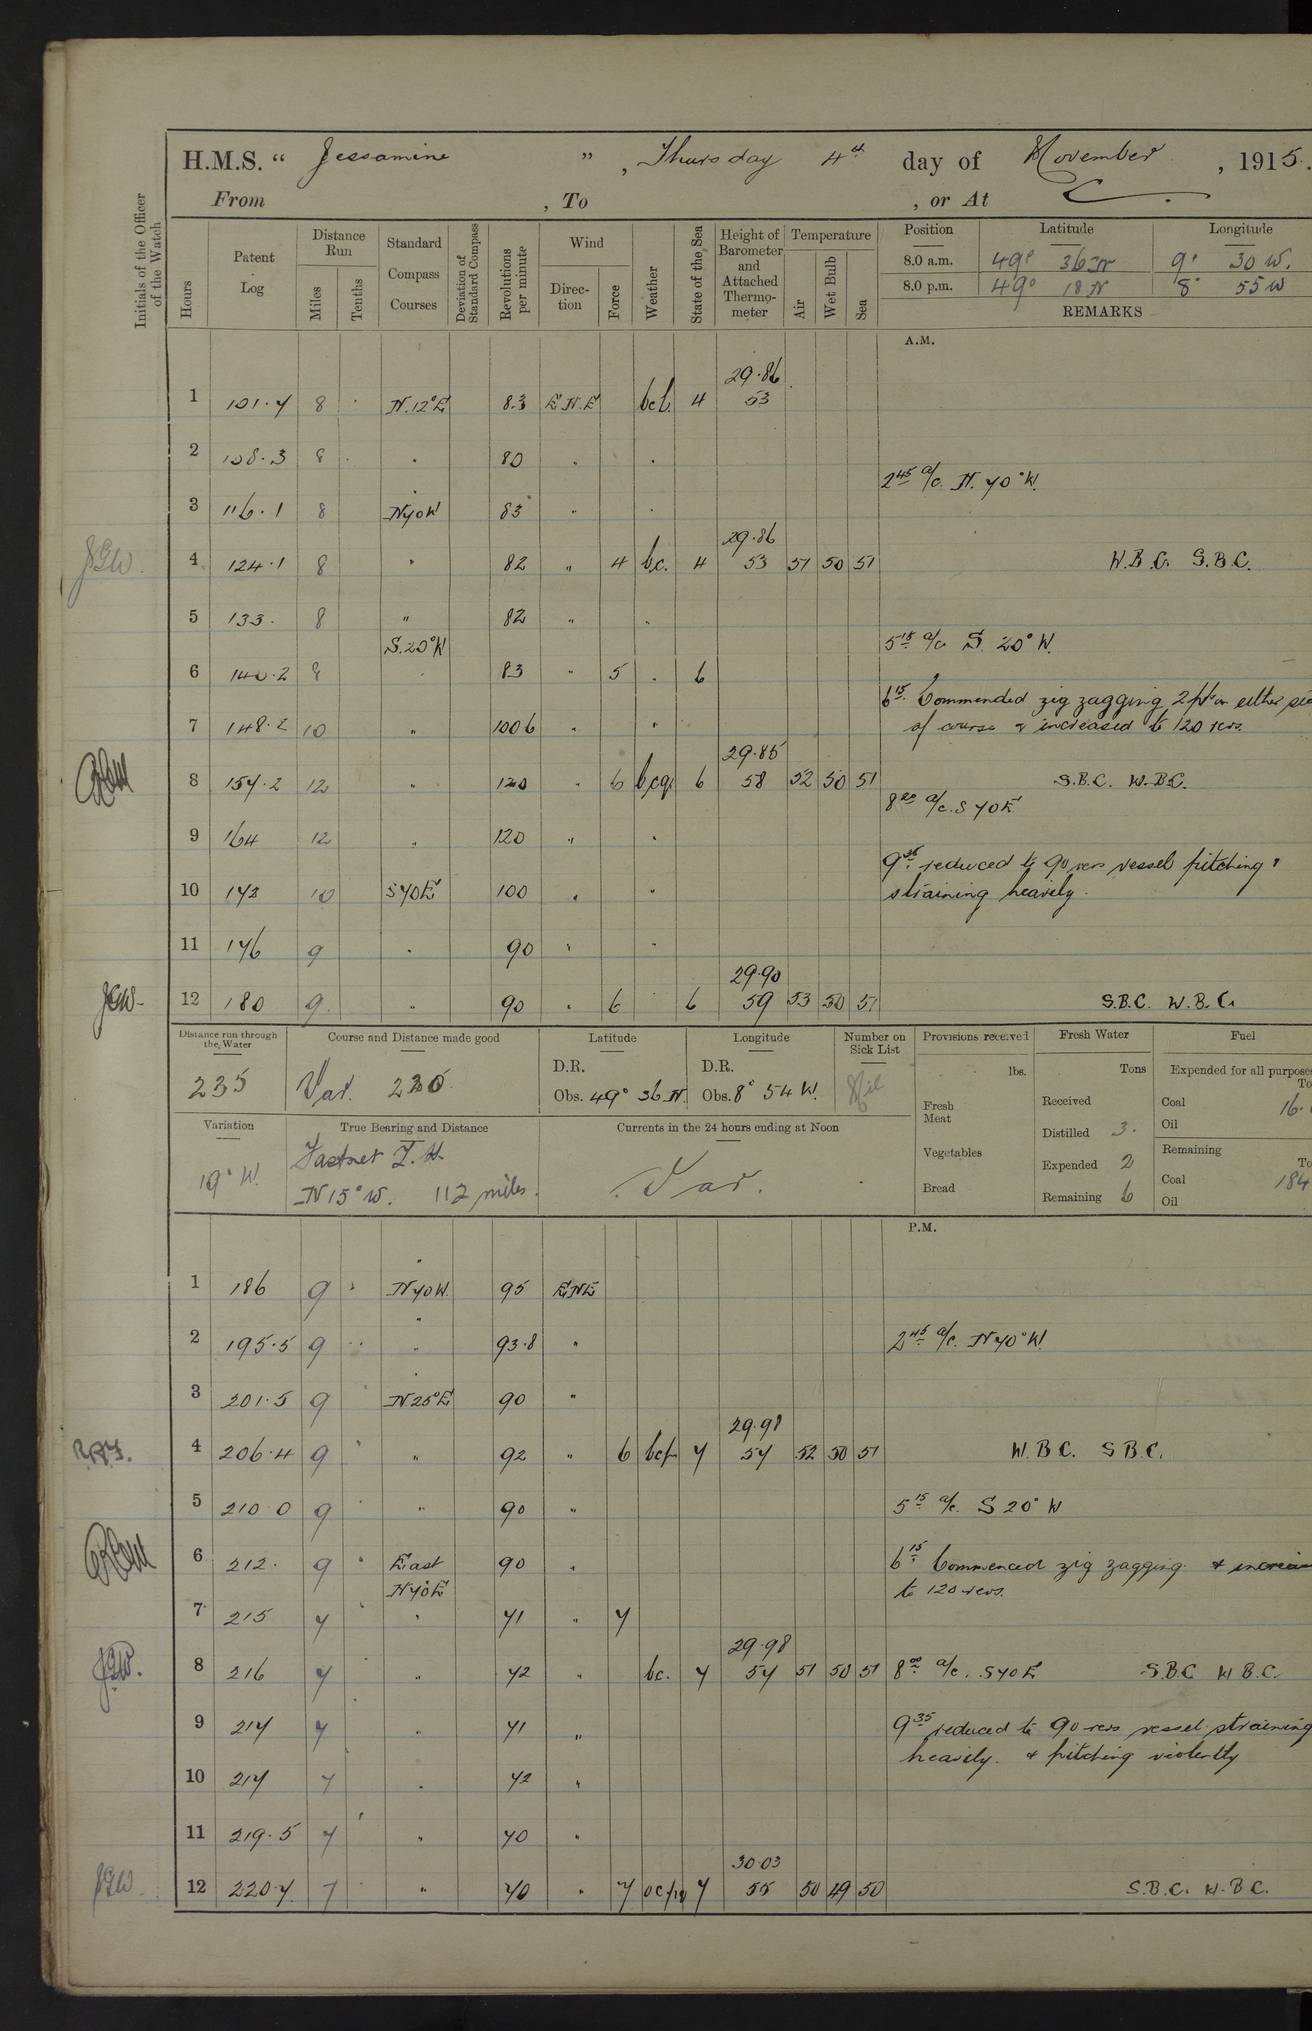 H.M.S. “ Jessamine ” , Thursday 4th day of November , 1915.
From , To , or At
Initials of the Officer of the Watch
Hours
Patent Log
Distance Run
Miles
Tenths
Standard Compass Courses
Deviation of Standard Compass
Revolutions per minute
Wind
Direction
Force
Weather
State of the Sea
Height of Barometer and Attached Thermometer
Temperature
Air
Wet Bulb
Sea
Position Latitude Longitude
8.0 a.m. 49° 36 N 9° 30 W.
8.0 p.m. 49° 18 N 8° 55 W
REMARKS
A.M.
29.86
1 101.7 8 N.12°E 83 E N E bc 4 53
2 108.3 8 " 80 " "
2 45 a/c. N. 70° W.
3 116.1 8 N70W 83 " "
29.86
4 124.1 8 " 82 " 4 bc. 4 53 51 50 51 W.B.C. S.B.C.
5 133. 8 " 82 " "
S.20°W 5 15 a/c S. 20° W.
6 140.2 8 " 83 " 5 " 6
6 15 Commended zig zagging 2 pts on either
7 148.2 10 " 100 6 " " of course & increased to 120 revs.
29.85
8 157.2 12 " 120 " 6 bcq 6 58 52 50 51 S.B.C. W.B.C.
8 00 a/c. S 70 E
9 164 12 " 120 " "
9 35 reduced to 90 revs vessel pitching &
10 173 10 S70E 100 " " straining heavily.
11 176 9 " 90 " "
29.90
12 180 9 " 90 " 6 6 59 53 50 51 S.B.C. W.B.C.
Distance run through the Water
235
Course and Distance made good
Var. 235
Latitude
D.R.
Obs. 49° 36 N.
Longitude
D.R.
Obs. 8° 54 W.
Number on Sick List
Nil
Provisions received
lbs.
Fresh Meat
Vegetables
Bread
Fresh Water
Tons
Received
Distilled 3.
Expended 2
Remaining 6
Fuel
Expended for all purposes
To
Coal 16.
Oil
Remaining
To
Coal 184
Oil
Variation
19° W.
True Bearing and Distance
Fastnet L.H.
N 15° W. 112 miles.
Currents in the 24 hours ending at Noon
Var.
P.M.
1 186 9 N70W. 95 ENE
2 195.5 9 " 93.8 " 2 45 a/c. N 70° W.
3 201.5 9 N25°E 90 "
29.98
4 206.4 9 " 92 " 6 bcp 7 57 52 50 51 W.B.C. S.B.C.
5 210.0 9 " 90 " 5 15 a/c. S 20° W
6 212. 9 East 90 " 6 15 Commenced zig zagging. &
N70E to 120 revs.
7 215 7 " 71 " 7
29.98
8 216 7 " 72 " bc. 7 57 51 50 51 8 00 a/c. S70E S.B.C W.B.C.
9 217 7 " 71 " 9 35 reduced to 90 revs vessel straining
heavily. & pitching violently
10 217 7 " 72 "
11 219.5 7 " 70 "
30.03
12 220.7 7 " 70 " 7 7 55 50 49 50 S.B.C. W.B.C.